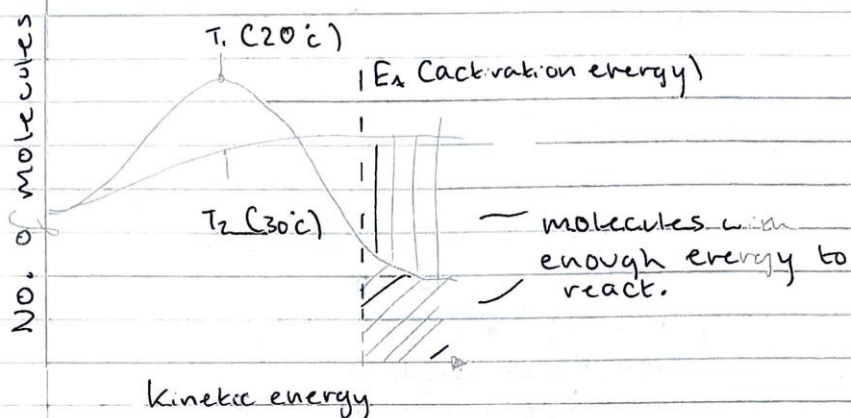 No. of molecules
T₁ (20°c)
EA (activation energy)
T₂ (30°c)
molecules with
enough energy to
react.
Kinetic energy